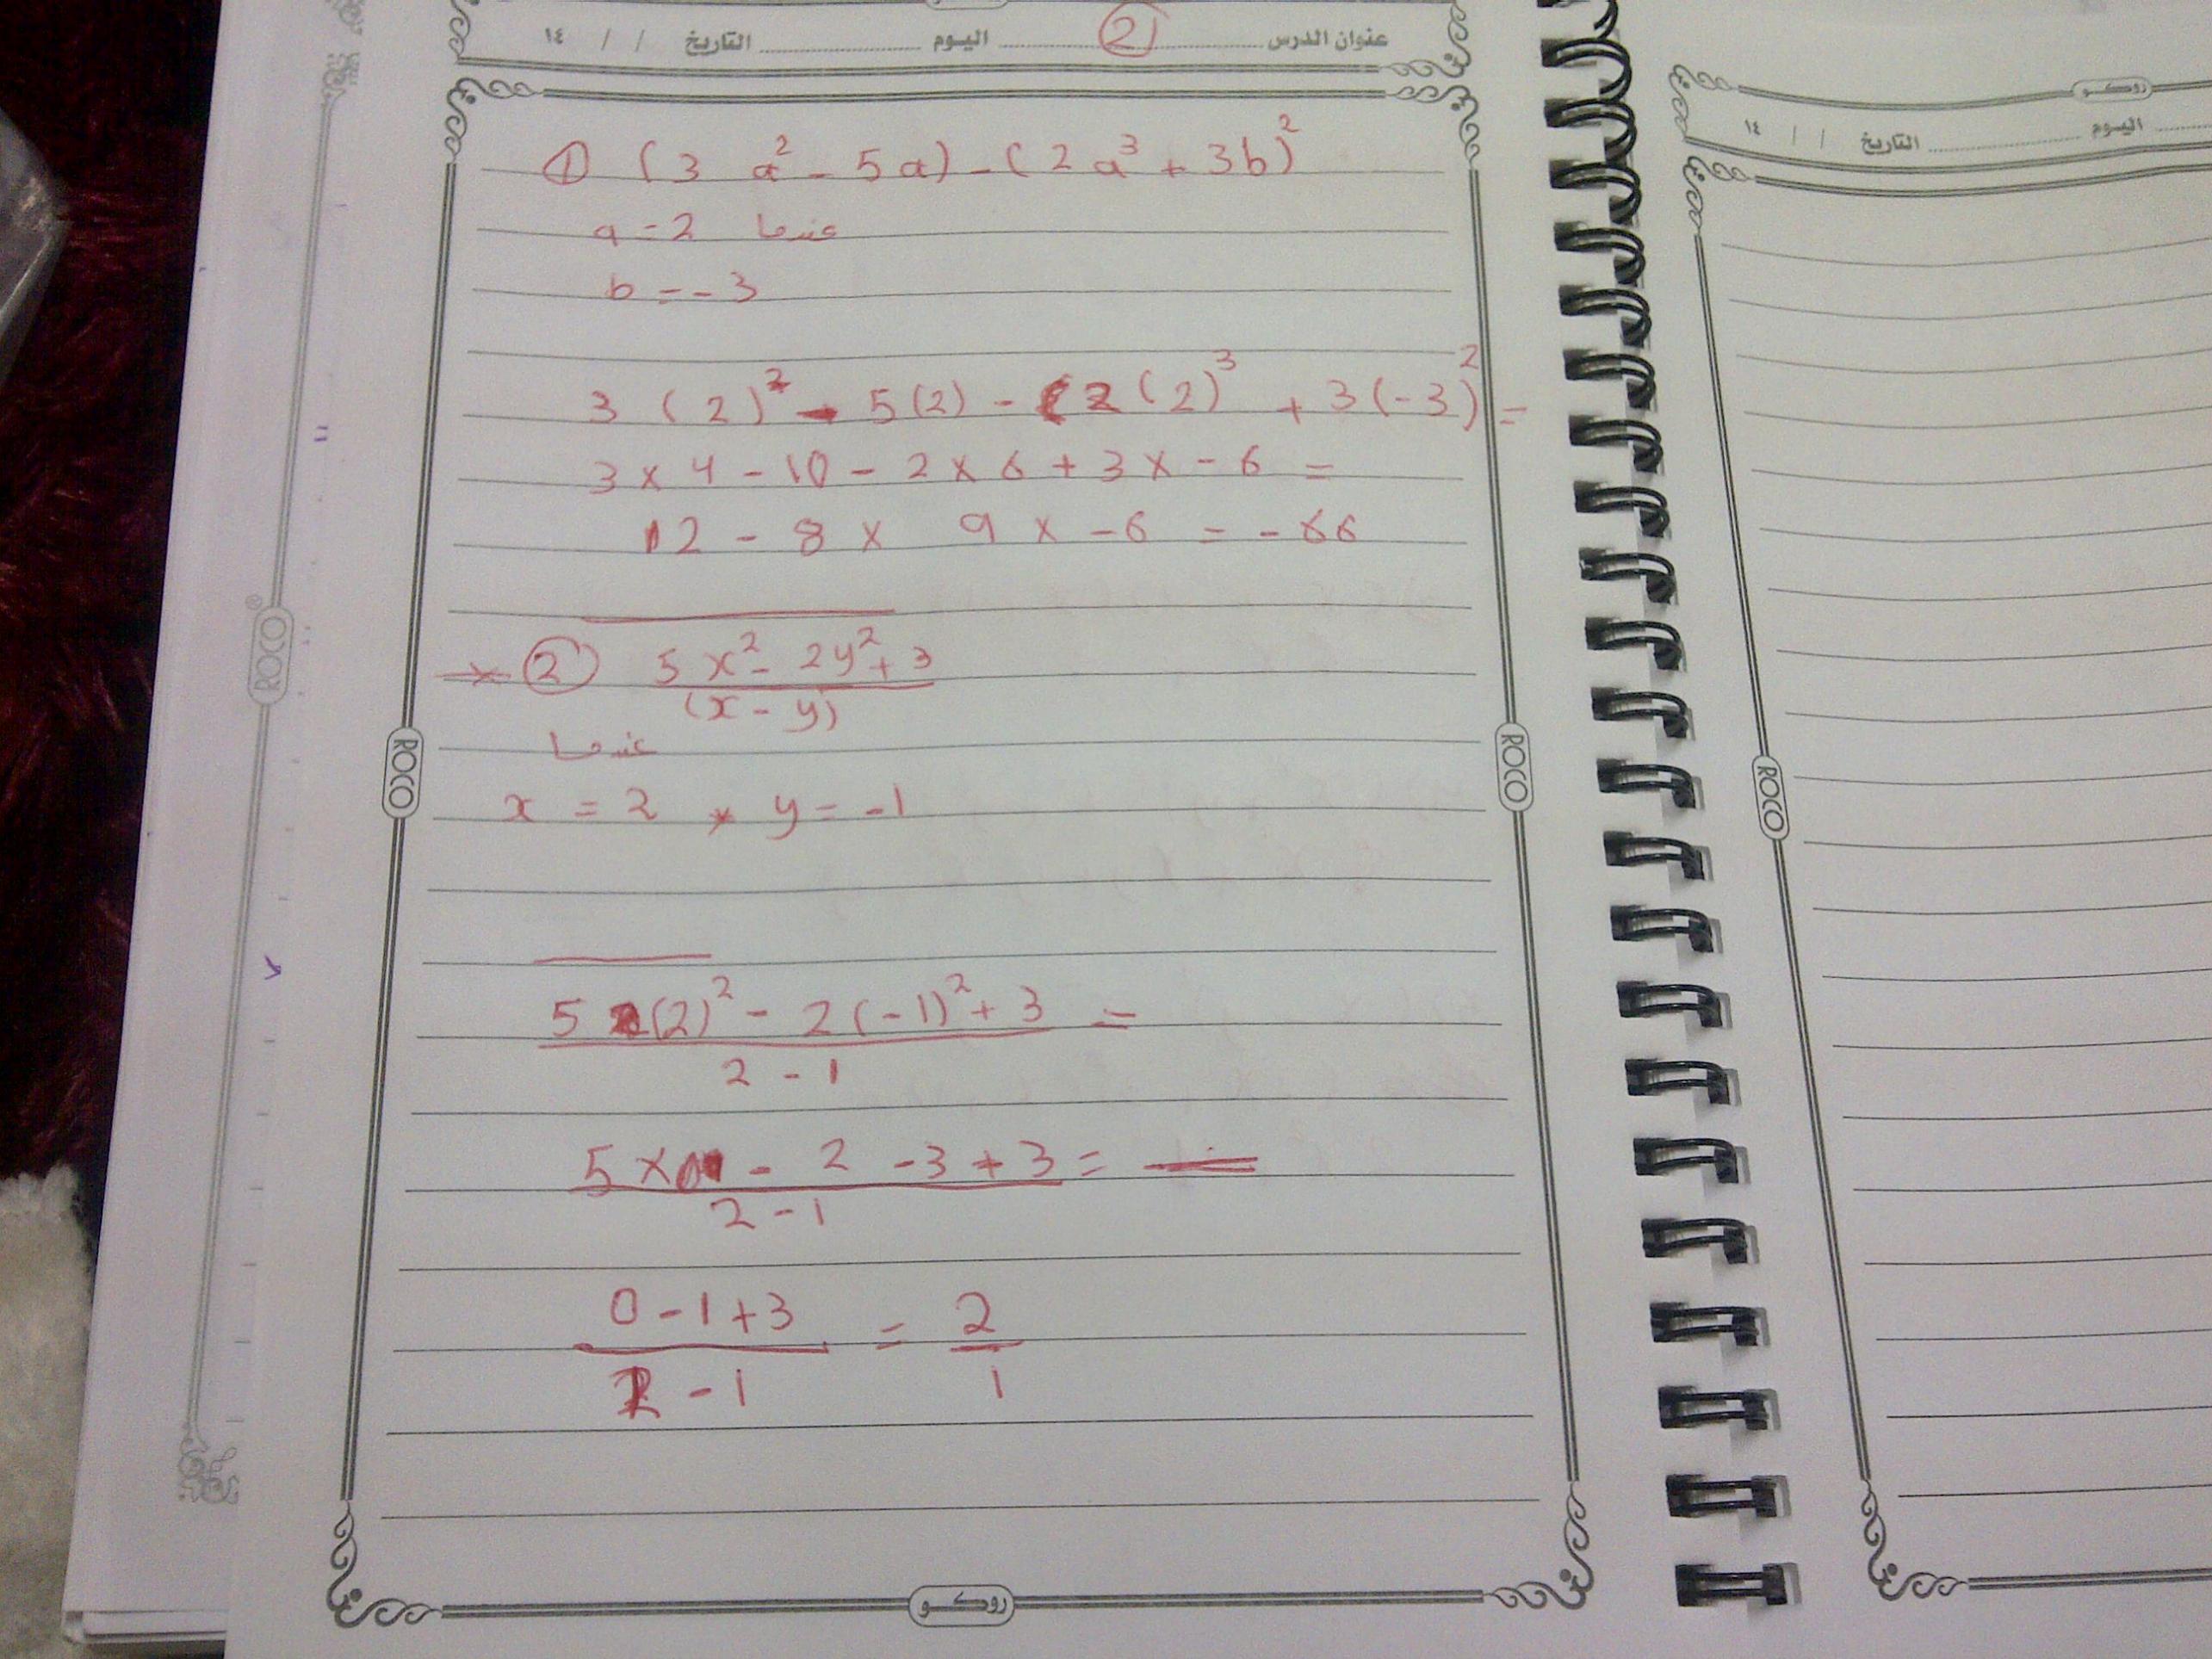 عنوان الدرس 21 اليوم التاريخ / / ١٤
① (3 a² - 5a) - (2a³ + 3b)²
a = 2 عندما
b = - 3
3 (2)² - 5(2) - (2 (2)³ + 3(-3)² =
3 x 4 - 10 - 2 x 6 + 3 x - 6 =
12 - 8 x 9 x -6 = - 66
② 5x² - 2y² + 3
(x - y)
عندما
x = 2 * y = -1
5 (2)² - 2(-1)² + 3 =
2 - 1
5 x - 2 - 3 + 3 =
2 - 1
0 - 1 + 3 = 2
2 - 1 1
روكو
ROCO
ROCO
ROCO®
روكو
اليوم التاريخ / / ١٤
ROCO